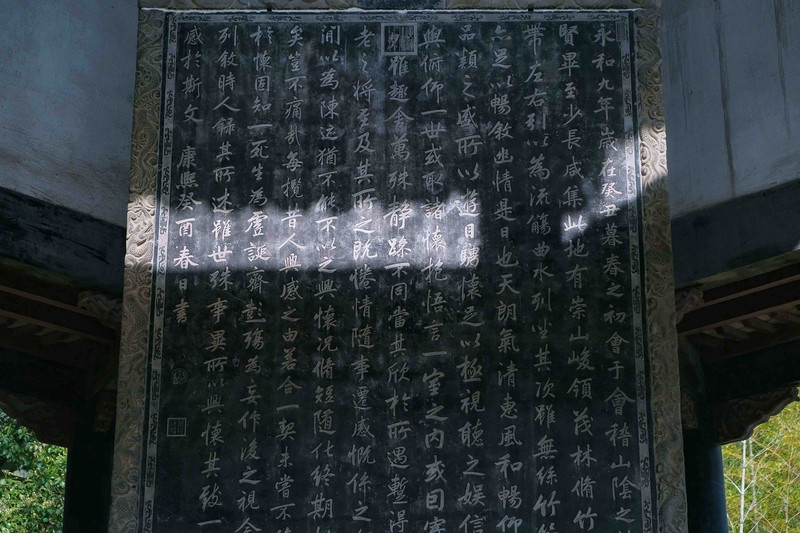 永和九年歲在癸丑暮春之初會于會稽山陰之
賢畢至少長咸集此地有崇山峻領茂林脩竹
帶左右引以為流觴曲水列坐其次雖無絲竹管
亦足以暢敘幽情是日也天朗氣清惠風和暢仰
品類之盛所以遊目騁懷足以極視聽之娛信
與俯仰一世或取諸懷抱悟言一室之內或因寄
雖趣舍萬殊靜躁不同當其欣於所遇暫得
老之將至及其所之既惓情隨事遷感慨係之
間以為陳迹猶不能不以之興懷況脩短隨化終期
矣豈不痛哉每攬昔人興感之由若合一契未嘗不
於懷固知一死生為虛誕齊彭殤為妄作後之視今
列敘時人錄其所述雖世殊事異所以興懷其致一
感於斯文 康熙癸酉春日書